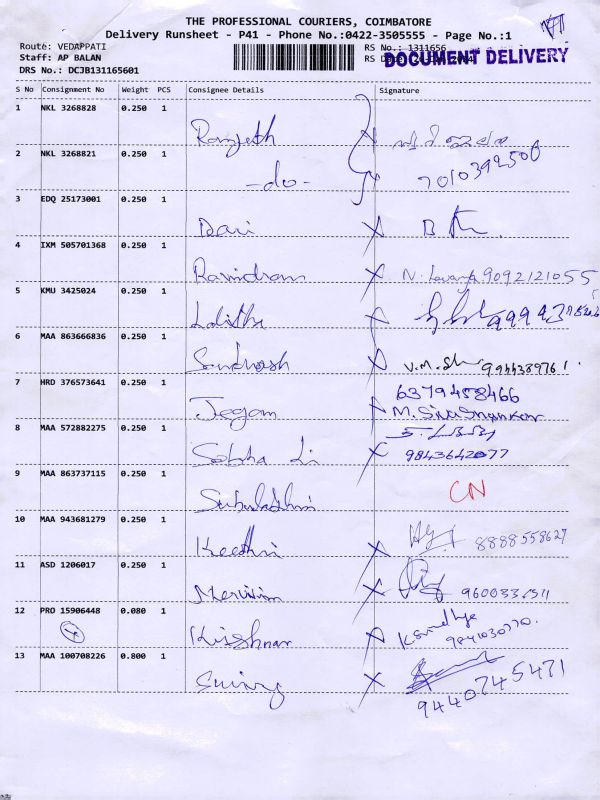 THE PROFESSIONAL COURIERS, COIMBATORE
Delivery Runsheet - P41 - Phone No.:0422-3505555 - Page No.:1
Route: VEDAPPATI
RS No.: 1311656
Staff: AP BALAN
RS Date:
DOCUMENT DELIVERY
DRS No.: DCJB131165601
S No Consignment No Weight PCS Consignee Details Signature
1 NKL 3268828 0.250 1
Ranjeth
2 NKL 3268821 0.250 1
-do- 7010392506
3 EDQ 25173001 0.250 1
4 IXM 505701368 0.250 1
N. Lavanya 9092121055
5 KMU 3425024 0.250 1
Lalitha
6 MAA 863666836 0.250 1
Santhosh
7 HRD 376573641 0.250 1
6379458466
Jegan M. Sivasankar
8 MAA 572882275 0.250 1
Sobha Li 9843642077
9 MAA 863737115 0.250 1
CN
10 MAA 943681279 0.250 1
Keethi 8888558627
11 ASD 1206017 0.250 1
12 PRO 15906448 0.080 1
Krishnan
13 MAA 100708226 0.800 1
9440745471